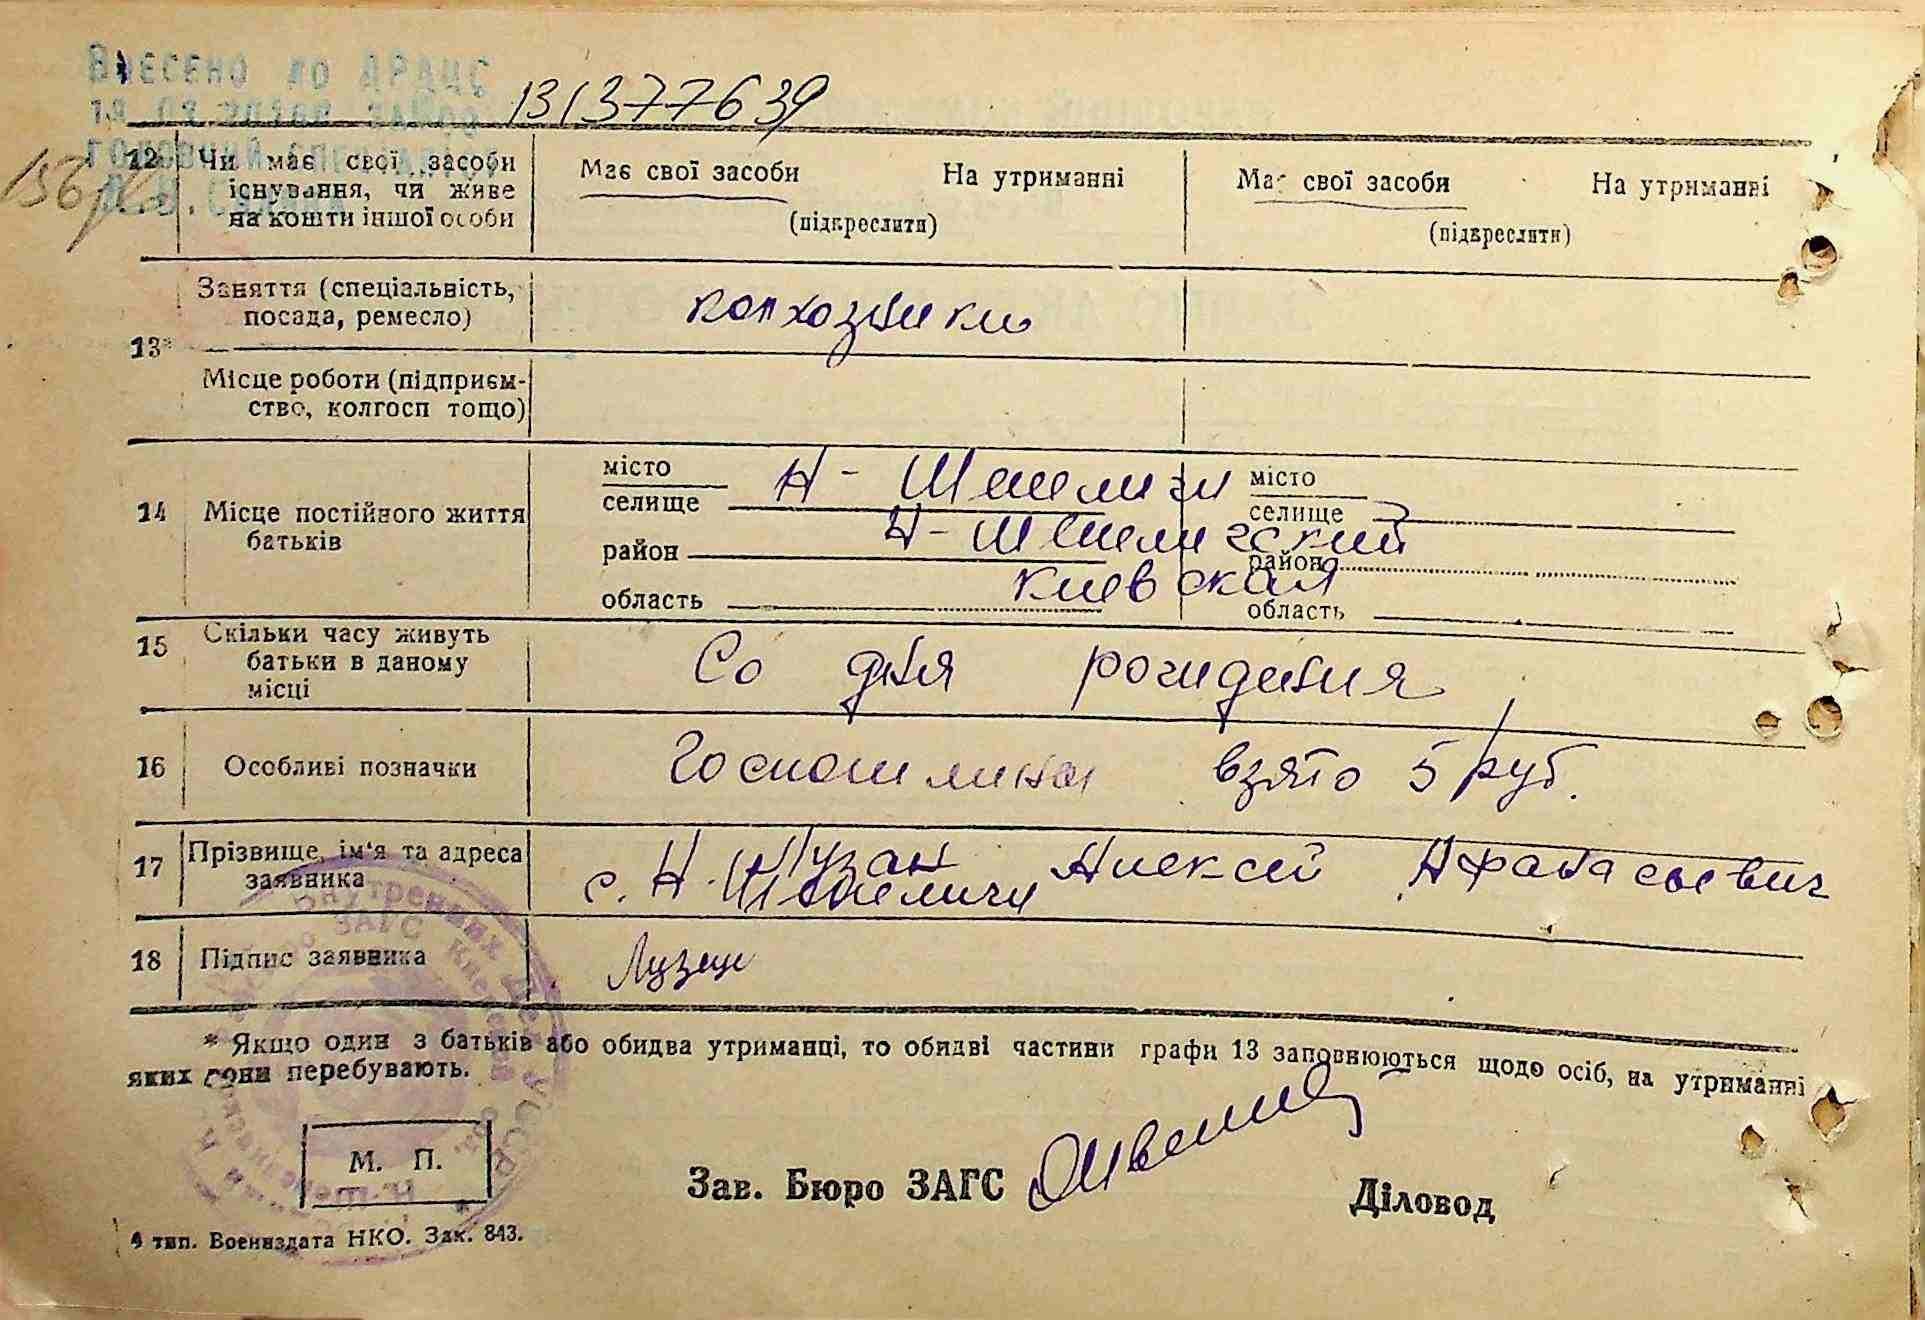 Внесено до ДРАЦС
131377639
12 Чи має свої засоби існування, чи живе на кошти іншої особи
Має свої засоби На утриманні
(підкреслити)
Має свої засоби На утриманні
(підкреслити)
13*
Заняття (спеціальність, посада, ремесло)
колхозники
Місце роботи (підприєм-
ство, колгосп тощо)
14 Місце постійного життя батьків
місто
селище Н-Шепеличи
район Н-Шепелический
область Киевская
місто
селище
район
область
15 Скільки часу живуть батьки в даному місці
Со дня рождения
16 Особливі позначки
Госпошлина взято 5 руб.
17 Прізвище, ім'я та адреса заявника
Лузан Алексей Афанасьевич
с. Н. Шепеличи
18 Підпис заявника
* Якщо один з батьків або обидва утриманці, то обидві частини графи 13 заповнюються щодо осіб, на утриманні
яких вони перебувають.
М. П.
Зав. Бюро ЗАГС
Діловод
4 тип. Воениздата НКО. Зак. 843.